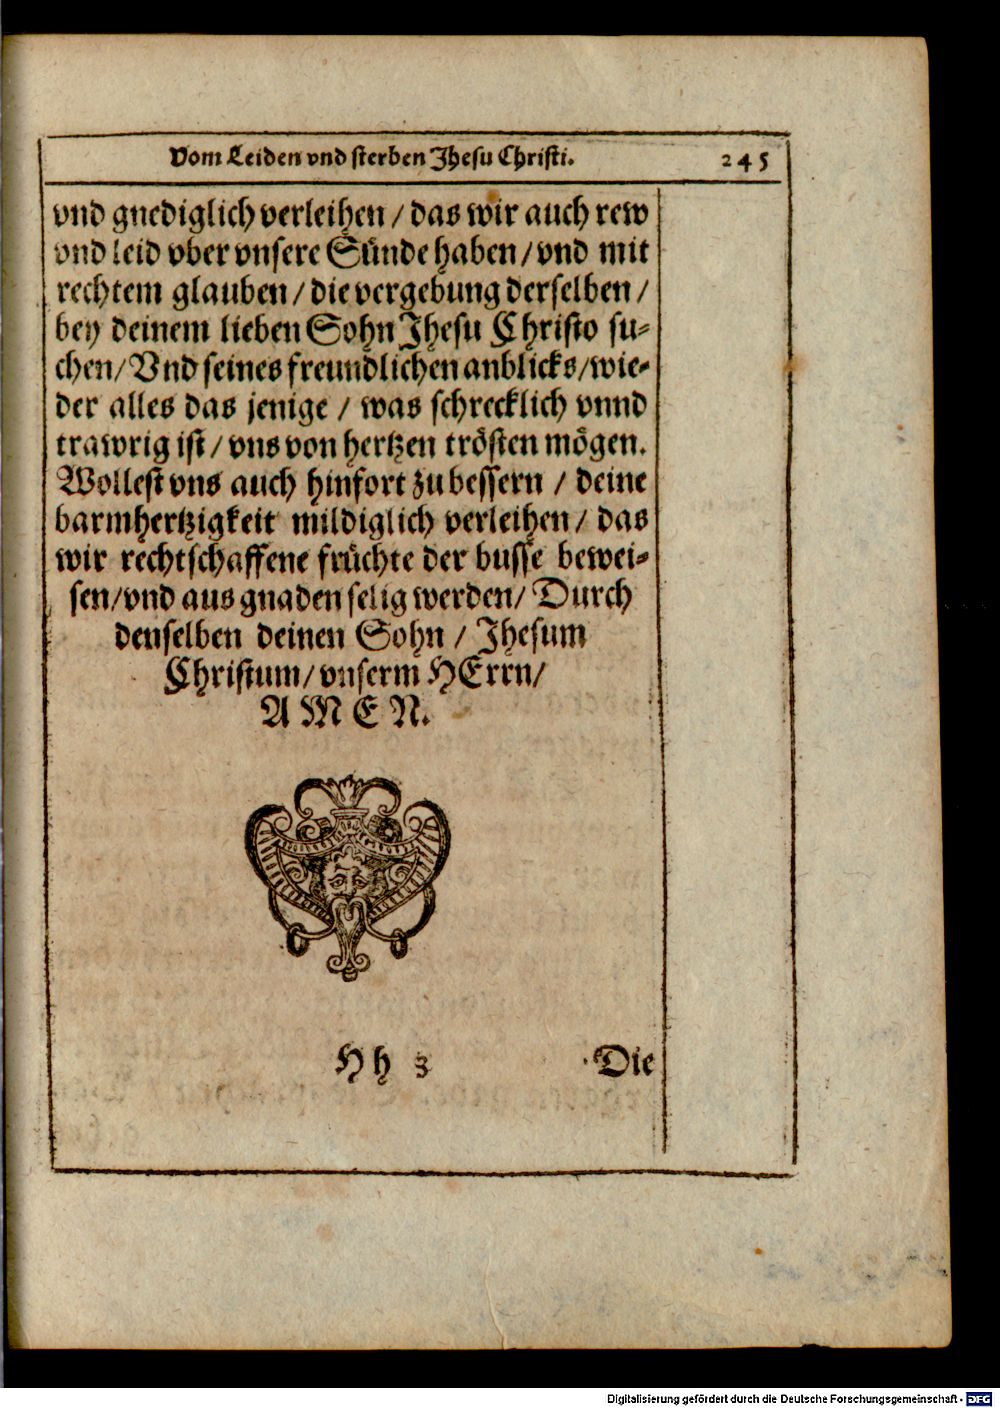 Vom Leiden vnd sterben Jhesu Christi. 245
vnd gnediglich verleihen / das wir auch rew
vnd leid vber vnsere Sünde haben / vnd mit
rechtem glauben / die vergebung derselben /
bey deinem lieben Sohn Jhesu Christo su-
chen / Vnd seines freundlichen anblicks / wie-
der alles das jenige / was schrecklich vnnd
trawrig ist / vns von hertzen trösten mögen.
Wollest vns auch hinfort zu bessern / deine
barmhertzigkeit mildiglich verleihen / das
wir rechtschaffene früchte der busse bewei-
sen / vnd aus gnaden selig werden / Durch
denselben deinen Sohn / Jhesum
Christum / vnserm HErrn /
AMEN.
Hh 3 Die
Digitalisierung gefördert durch die Deutsche Forschungsgemeinschaft - DFG